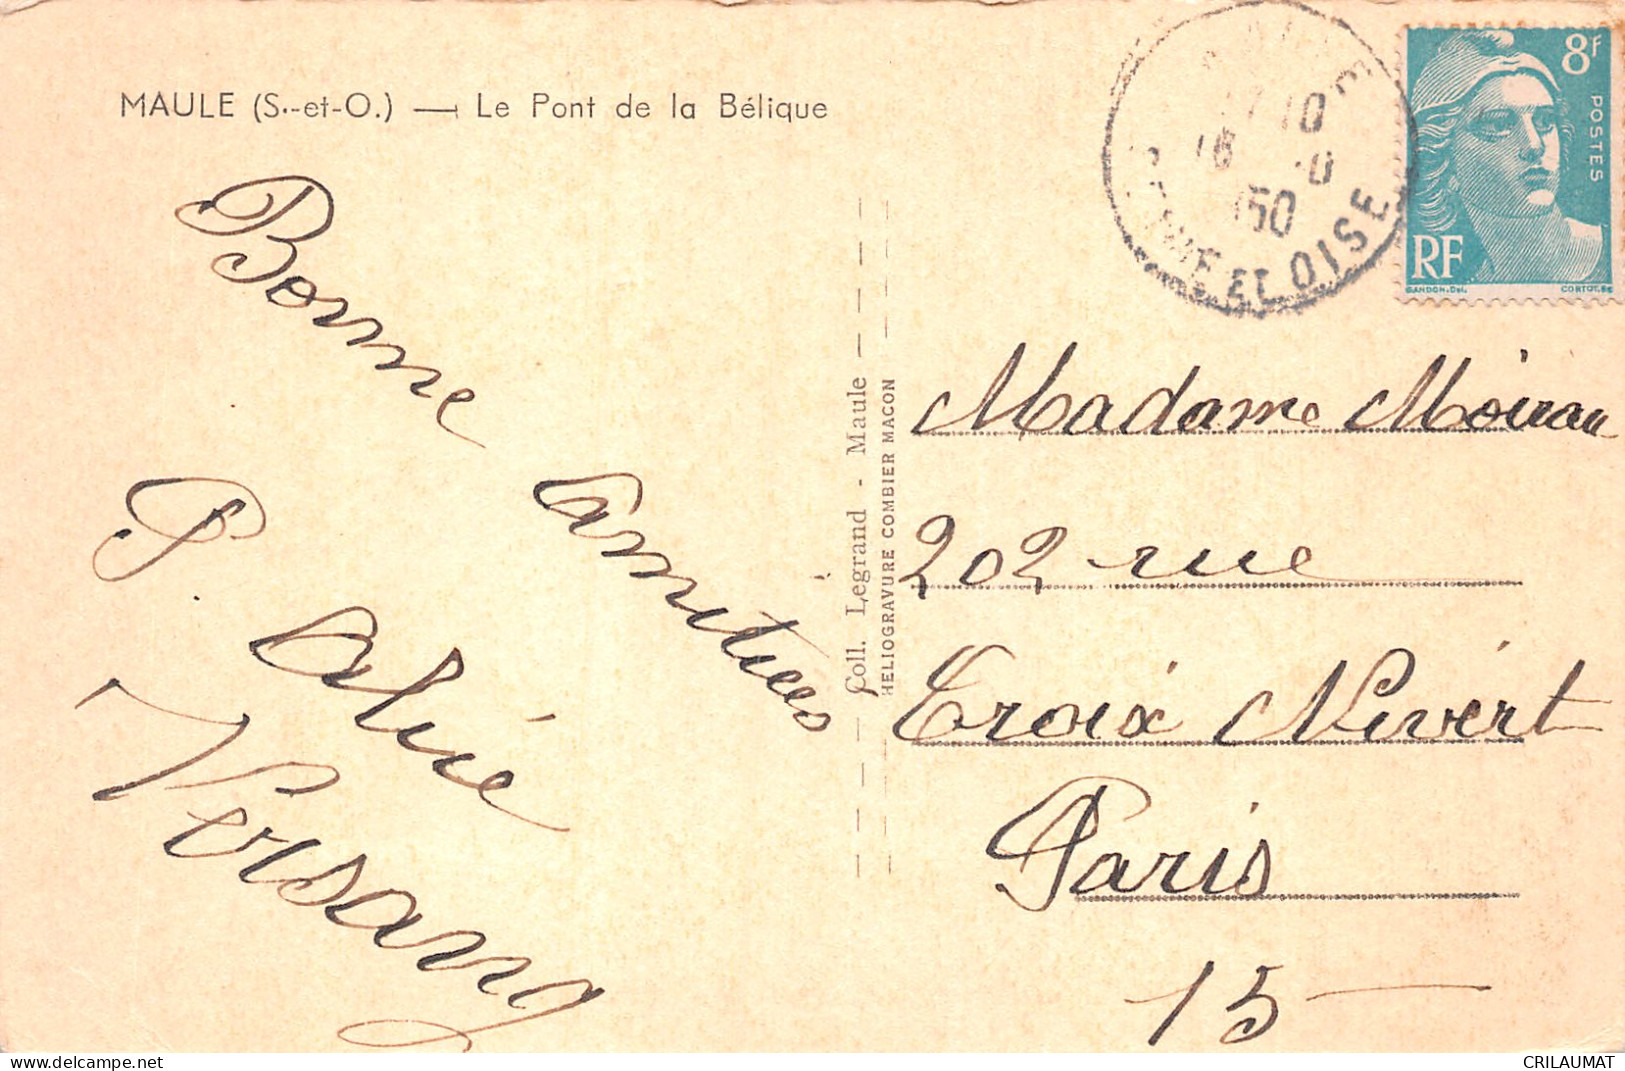 MAULE (S.-et-O.) — Le Pont de la Bélique
Bonne
amitiées
P.
Versang
Coll. Legrand - Maule
HELIOGRAVURE COMBIER MACON
10
18
50
SEINE ET OISE
8F
POSTES
RF
GANDON.Del.
CORTOT.Sc
Madame Moireau
202 rue
Croix Nivert
Paris
15
https://www.delcampe.net
CRILAUMAT